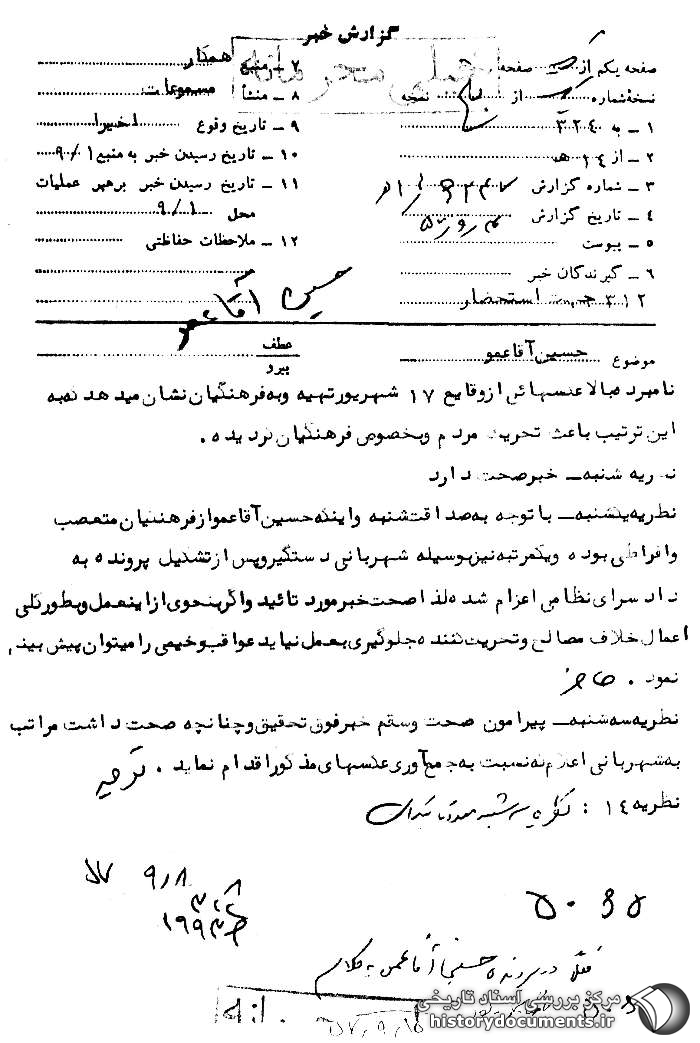 گزارش خبر
خیلی محرمانه
صفحه یکم از صفحه
نسخهٔ شماره از نسخه
۱ ـ به ۳۲۴
۲ ـ از ۱۴ هـ
۳ ـ شماره گزارش
۴ ـ تاریخ گزارش
۵ ـ پیوست
۶ ـ گیرندگان خبر
۳۱۲ جهت استحضار
۷ ـ منبع همکار
۸ ـ منشأ مسموعات
۹ ـ تاریخ وقوع اخیرا
۱۰ ـ تاریخ رسیدن خبر به منبع ۹/۱
۱۱ ـ تاریخ رسیدن خبر برهبر عملیات
محل ۹/۱
۱۲ ـ ملاحظات حفاظتی
حسین آقا عمو
موضوع حسین آقاعمو
عطف
پیرو
نامبرده بالا عکسهائی از وقایع ۱۷ شهریور تهیه و به فرهنگیان نشان میدهد که به
این ترتیب باعث تحریک مردم و بخصوص فرهنگیان گردیده.
نظریه شنبه ـ خبر صحت دارد
نظریه یکشنبه ـ با توجه به صداقت شنبه و اینکه حسین آقاعمو از فرهنگیان متعصب
و افراطی بوده و یکمرتبه نیز بوسیله شهربانی دستگیر و پس از تشکیل پرونده به
دادسرای نظامی اعزام شده لذا صحت خبر مورد تائید و اگر بنحوی از اینعمل و بطور کلی
اعمال خلاف مصالح و تحریک کننده جلوگیری بعمل نیاید عواقب وخیمی را میتوان پیش بینی
نمود.
نظریه سه شنبه ـ پیرامون صحت و سقم خبر فوق تحقیق و چنانچه صحت داشت مراتب
به شهربانی اعلام که نسبت به جمع آوری عکسهای مذکور اقدام نماید.
نظریه ۱۴ : نظریه سه شنبه مورد تائید است
۹/۸
در پرونده حسین آقا عمو
مرکز بررسی اسناد تاریخی
historydocuments.ir